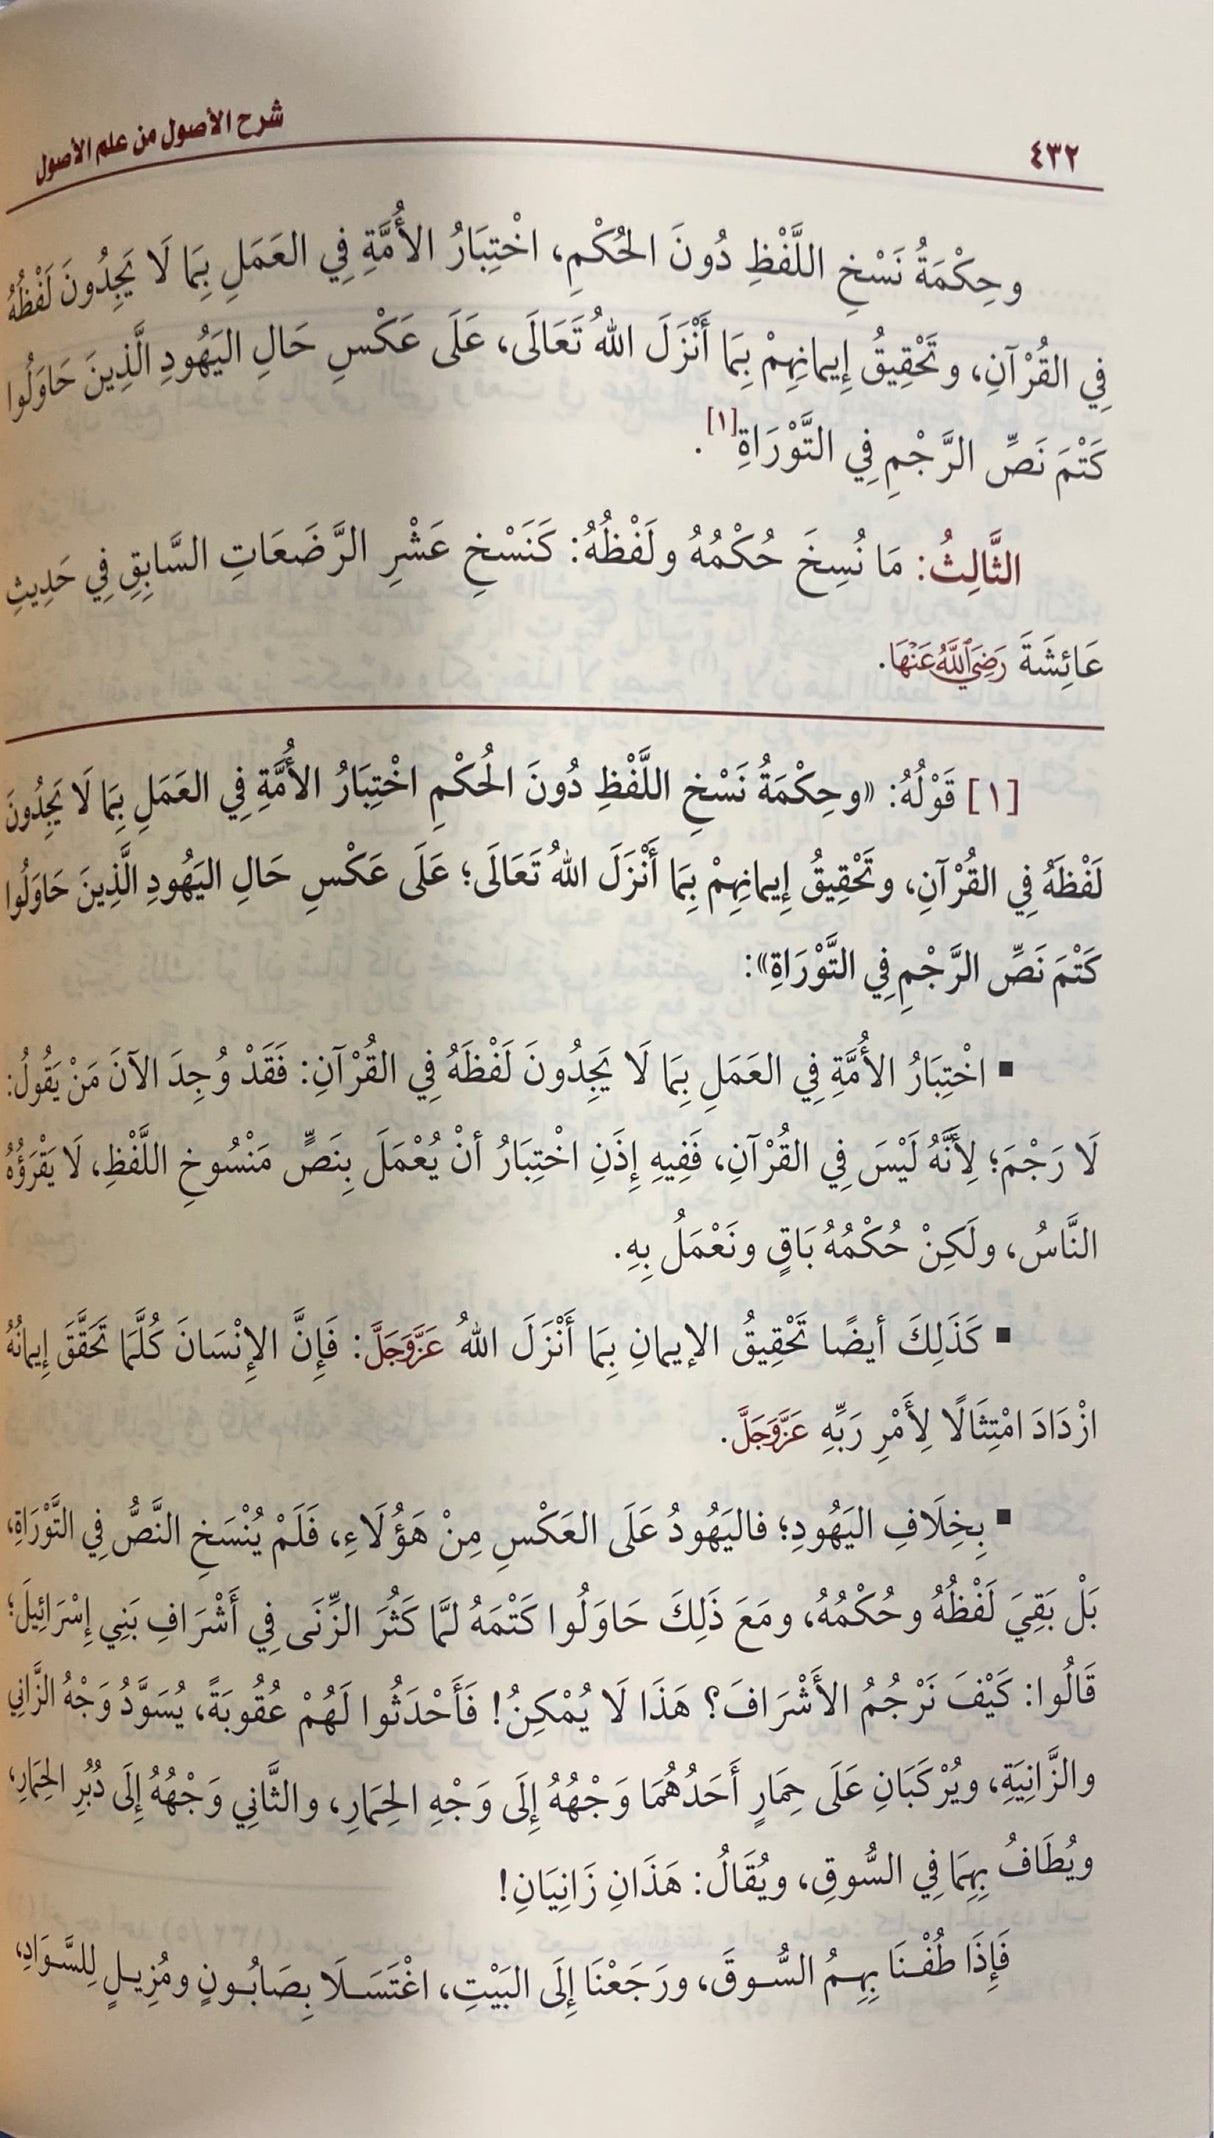 ٤٣٢
شرح الأصول من علم الأصول
وحِكْمَةُ نَسْخِ اللَّفْظِ دُونَ الحُكْمِ، اخْتِبَارُ الأُمَّةِ فِي العَمَلِ بِمَا لَا يَجِدُونَ لَفْظُهُ
فِي القُرْآنِ، وتَحْقِيقُ إِيمانِهِمْ بِمَا أَنْزَلَ اللهُ تَعَالَى، عَلَى عَكْسِ حَالِ اليَهُودِ الَّذِينَ حَاوَلُوا
كَتْمَ نَصِّ الرَّجْمِ فِي التَّوْرَاةِ[١].
الثَّالِثُ: مَا نُسِخَ حُكْمُهُ ولَفْظُهُ: كَنَسْخِ عَشْرِ الرَّضَعَاتِ السَّابِقِ فِي حَدِيثِ
عَائِشَةَ رَضِيَ اللَّهُ عَنْهَا.
[١] قَوْلُهُ: «وحِكْمَةُ نَسْخِ اللَّفْظِ دُونَ الحُكْمِ اخْتِبَارُ الأُمَّةِ فِي العَمَلِ بِمَا لَا يَجِدُونَ
لَفْظَهُ فِي القُرْآنِ، وتَحْقِيقُ إِيمانِهِمْ بِمَا أَنْزَلَ اللهُ تَعَالَى؛ عَلَى عَكْسِ حَالِ اليَهُودِ الَّذِينَ حَاوَلُوا
كَتْمَ نَصِّ الرَّجْمِ فِي التَّوْرَاةِ»:
▪ اخْتِبَارُ الأُمَّةِ فِي العَمَلِ بِمَا لَا يَجِدُونَ لَفْظَهُ فِي القُرْآنِ: فَقَدْ وُجِدَ الآنَ مَنْ يَقُولُ:
لَا رَجْمَ؛ لِأَنَّهُ لَيْسَ فِي القُرْآنِ، فَفِيهِ إِذَنِ اخْتِبَارُ أنْ يُعْمَلَ بِنَصٍّ مَنْسُوخِ اللَّفْظِ، لَا يَقْرَؤُهُ
النَّاسُ، ولَكِنْ حُكْمُهُ بَاقٍ ونَعْمَلُ بِهِ.
▪ كَذَلِكَ أيضًا تَحْقِيقُ الإيمانِ بِمَا أَنْزَلَ اللهُ عَزَّوَجَلَّ: فَإِنَّ الإِنْسَانَ كُلَّمَا تَحَقَّقَ إِيمانُهُ
ازْدَادَ امْتِثَالًا لِأَمْرِ رَبِّهِ عَزَّوَجَلَّ.
▪ بِخِلَافِ اليَهُودِ؛ فاليَهُودُ عَلَى العَكْسِ مِنْ هَؤُلَاءِ، فَلَمْ يُنْسَخِ النَّصُّ فِي التَّوْرَاةِ،
بَلْ بَقِيَ لَفْظُهُ وحُكْمُهُ، ومَعَ ذَلِكَ حَاوَلُوا كَتْمَهُ لمَّا كَثُرَ الزِّنَى فِي أَشْرَافِ بَنِي إِسْرَائِيلَ؛
قَالُوا: كَيْفَ نَرْجُمُ الأَشْرَافَ؟ هَذَا لَا يُمْكِنُ! فَأَحْدَثُوا لَهُمْ عُقُوبَةً، يُسَوَّدُ وَجْهُ الزَّانِي
والزَّانِيَةِ، ويُرْكَبَانِ عَلَى حِمَارٍ أَحَدُهُمَا وَجْهُهُ إِلَى وَجْهِ الحِمَارِ، والثَّانِي وَجْهُهُ إِلَى دُبُرِ الحِمَارِ،
ويُطَافُ بِهِمَا فِي السُّوقِ، ويُقَالُ: هَذَانِ زَانِيَانِ!
فَإِذَا طُفْنَا بِهِمُ السُّوقَ، ورَجَعْنَا إِلَى البَيْتِ، اغْتَسَلَا بِصَابُونٍ ومُزِيلٍ لِلسَّوَادِ،